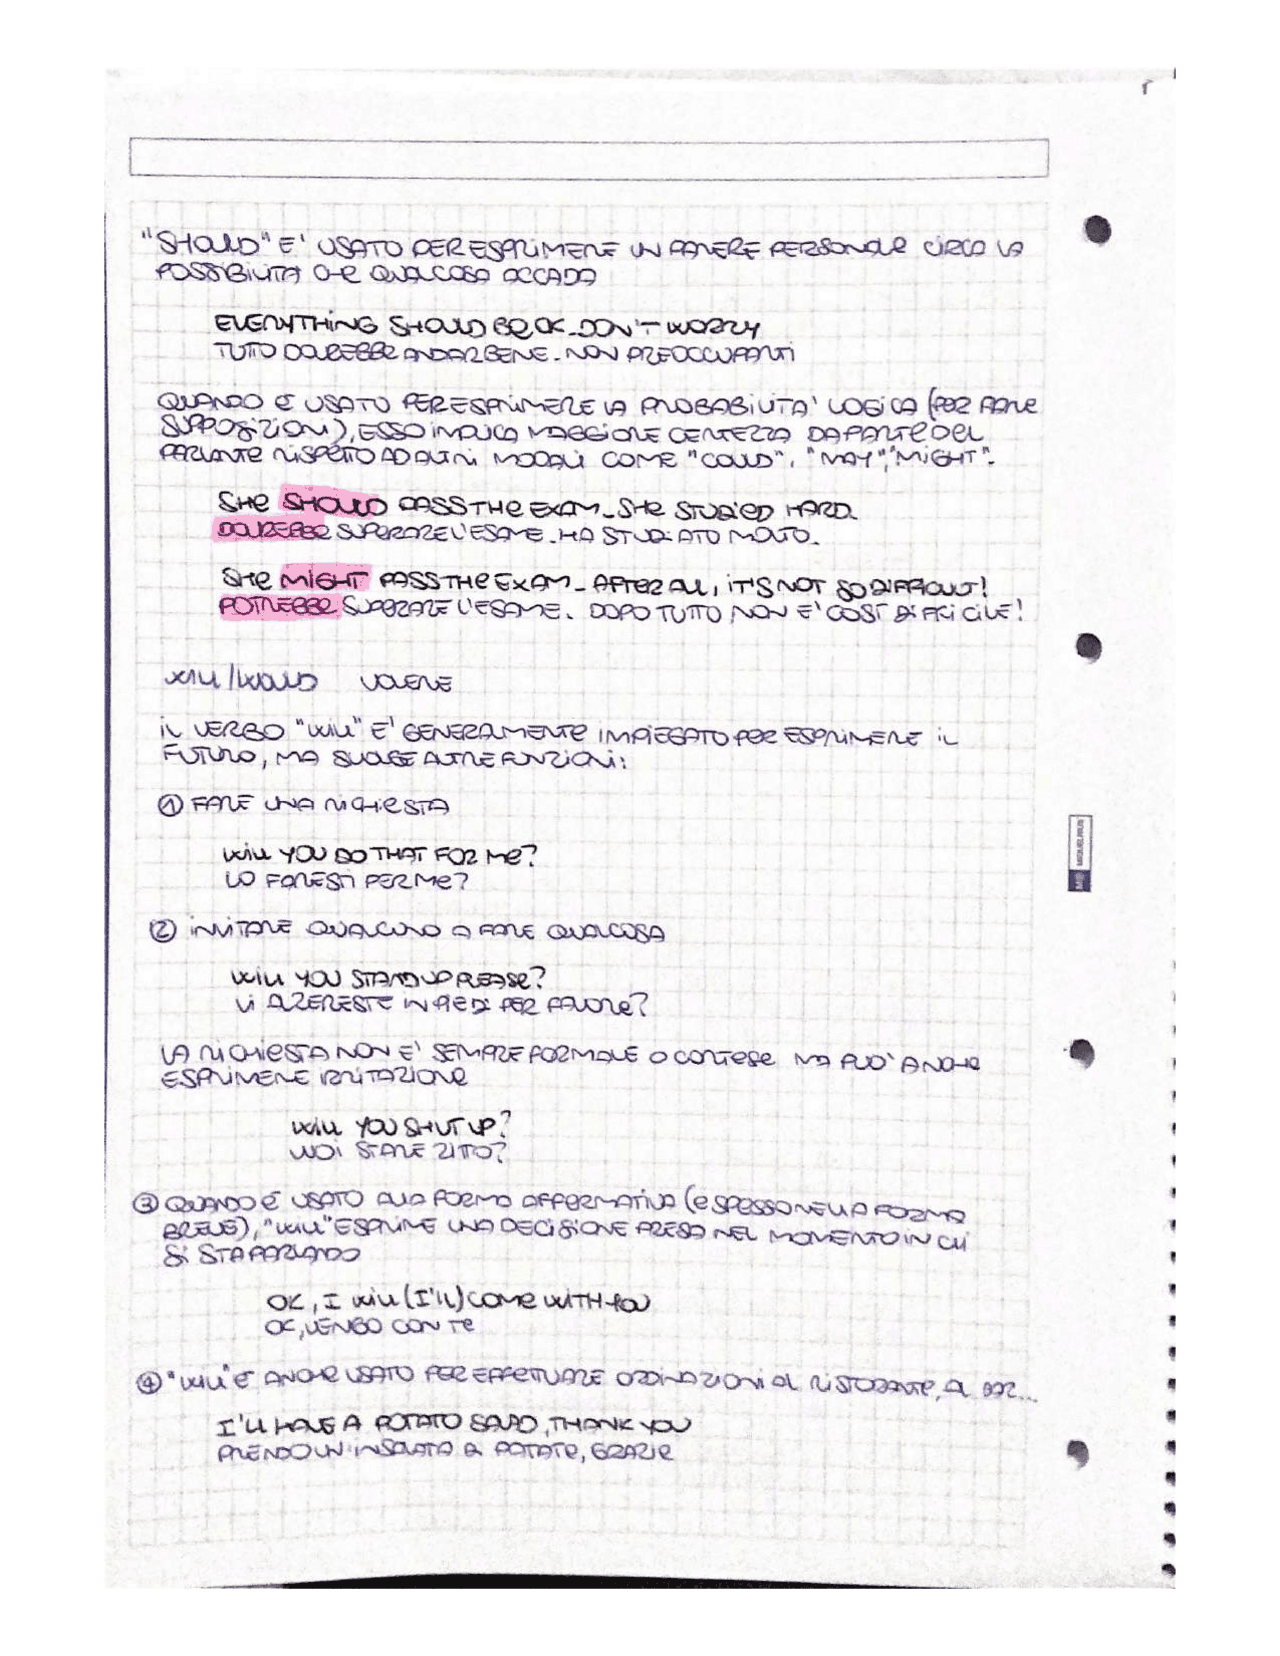 "SHOULD" E' USATO PER ESPRIMERE UN PARERE PERSONALE CIRCA LA
POSSIBILITA CHE QUALCOSA ACCADA
EVERYTHING SHOULD BE OK. DON'T WORRY
TUTTO DOVREBBE ANDAR BENE. NON PREOCCUPARTI
QUANDO E' USATO PER ESPRIMERE LA PROBABILITA' LOGICA (PER FARE
SUPPOSIZIONI), ESSO INDICA MAGGIORE CERTEZZA DA PARTE DEL
PARLANTE RISPETTO AD ALTRI MODALI COME "COULD", "MAY", "MIGHT".
SHE SHOULD PASS THE EXAM. SHE STUDIED HARD.
DOVREBBE SUPERARE L'ESAME. HA STUDIATO MOLTO.
SHE MIGHT PASS THE EXAM. AFTER ALL, IT'S NOT SO DIFFICULT!
POTREBBE SUPERARE L'ESAME. DOPO TUTTO NON E' COSI DIFFICILE!
WILL/WOULD VOLERE
IL VERBO "WILL" E' GENERALMENTE IMPIEGATO PER ESPRIMERE IL
FUTURO, MA SVOLGE ALTRE FUNZIONI:
① FARE UNA RICHIESTA
WILL YOU DO THAT FOR ME?
LO FARESTI PER ME?
② INVITARE QUALCUNO A FARE QUALCOSA
WILL YOU STAND UP PLEASE?
VI ALZERESTE IN PIEDI PER FAVORE?
LA RICHIESTA NON E' SEMPRE FORMALE O CORTESE MA PUO' ANCHE
ESPRIMERE IRRITAZIONE
WILL YOU SHUT UP?
VUOI STARE ZITTO?
③ QUANDO E' USATO ALLA FORMA AFFERMATIVA (E SPESSO NELLA FORMA
BREVE), "WILL" ESPRIME UNA DECISIONE PRESA NEL MOMENTO IN CUI
SI STA PARLANDO
OK, I WILL (I'LL) COME WITH YOU
OK, VENGO CON TE
④ "WILL" E' ANCHE USATO PER EFFETTUARE ORDINAZIONI AL RISTORANTE, AL BAR...
I'LL HAVE A POTATO SALAD, THANK YOU
PRENDO UN'INSALATA DI PATATE, GRAZIE
MIQUELRIUS